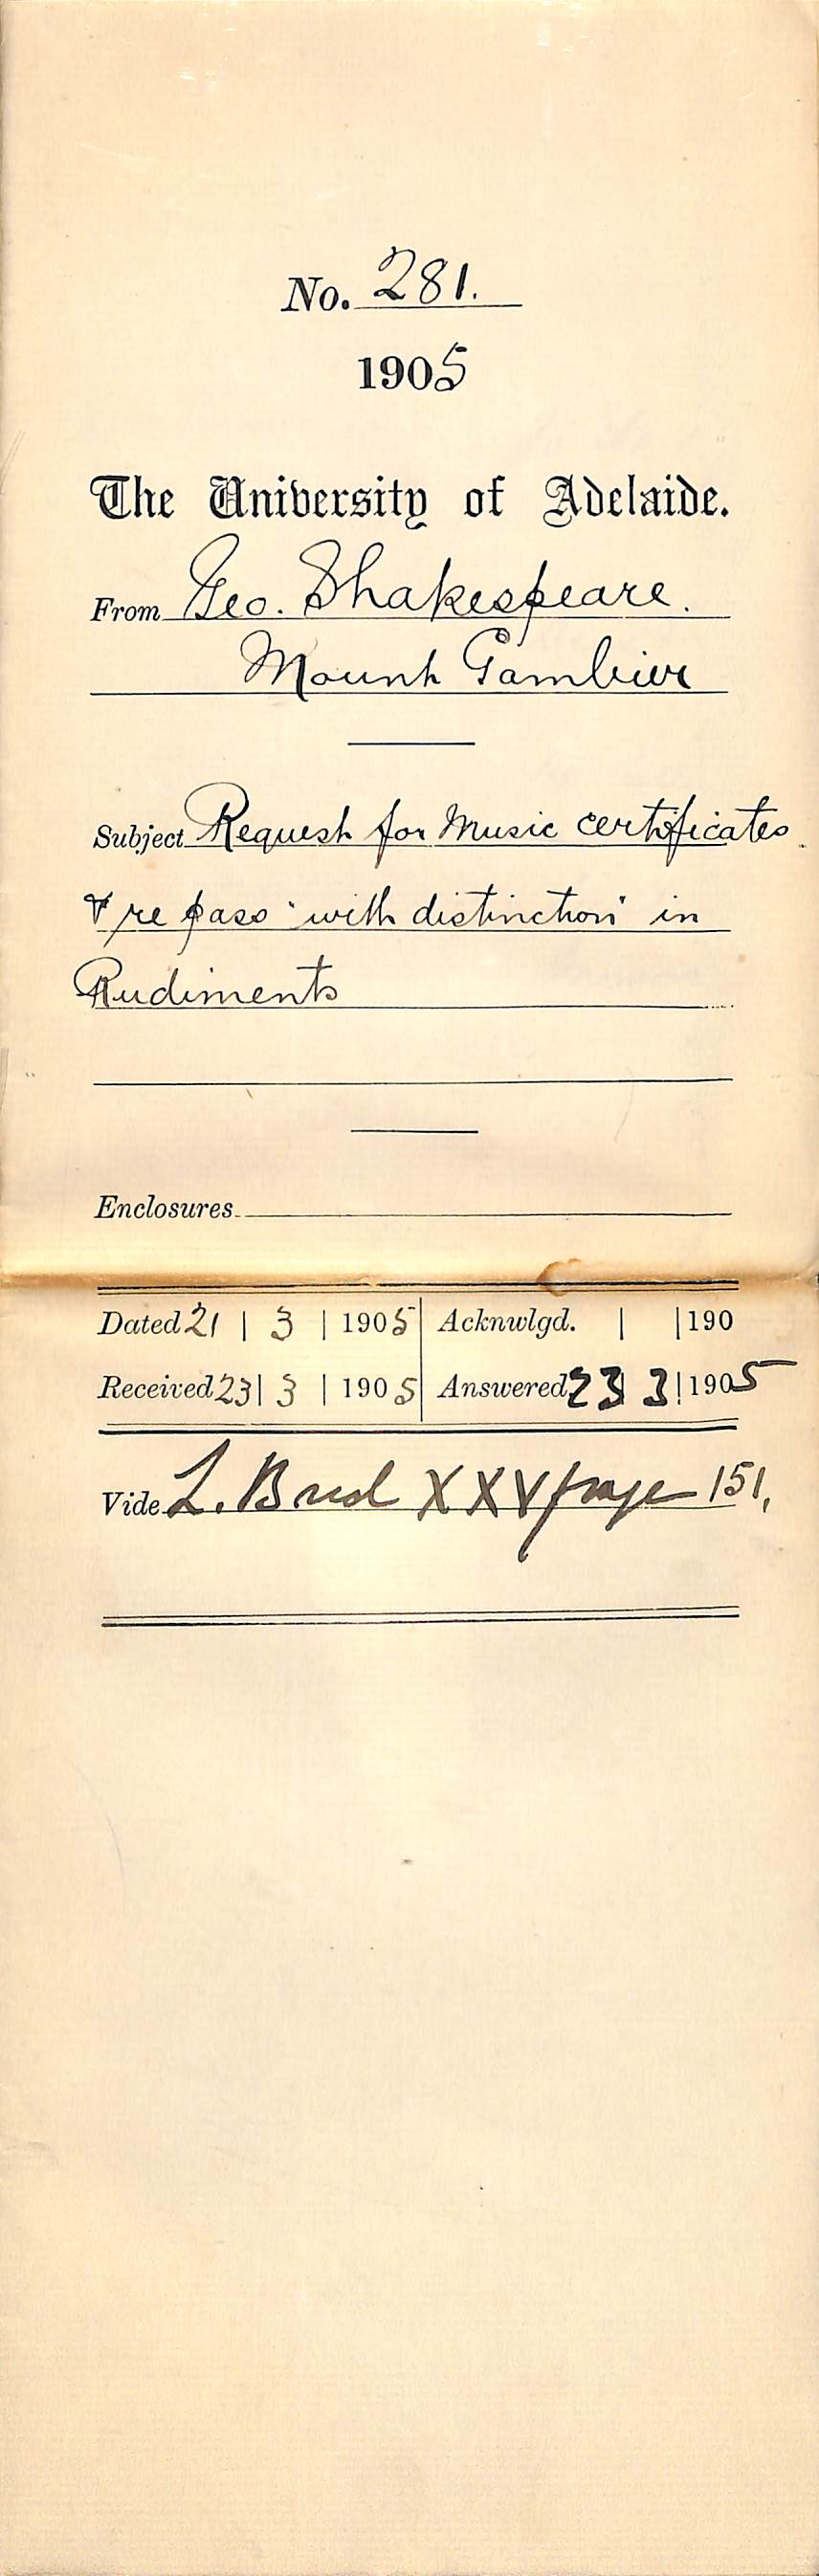 No. 281.
1905
The University of Adelaide.
From Geo. Shakespeare.
Mount Gambier
Subject Request for Music certificates
& re pass "with distinction" in
Rudiments
Enclosures
Dated 21 | 3 | 1905 Acknwlgd. | | 190
Received 23 | 3 | 1905 Answered 23 3 | 1905
Vide L. XXV page 151,